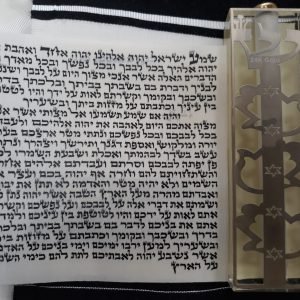 שמע ישראל יהוה אלהינו יהוה אחד ואהבת את
יהוה אלהיך בכל לבבך ובכל נפשך ובכל מאדך והיו
הדברים האלה אשר אנכי מצוך היום על לבבך ושננתם
לבניך ודברת בם בשבתך בביתך ובלכתך בדרך
ובשכבך ובקומך וקשרתם לאות על ידך והיו לטטפת
בין עיניך וכתבתם על מזזות ביתך ובשעריך
והיה אם שמע תשמעו אל מצותי אשר אנכי
מצוה אתכם היום לאהבה את יהוה אלהיכם ולעבדו
בכל לבבכם ובכל נפשכם ונתתי מטר ארצכם בעתו
יורה ומלקוש ואספת דגנך ותירשך ויצהרך ונתתי
עשב בשדך לבהמתך ואכלת ושבעת השמרו לכם
פן יפתה לבבכם וסרתם ועבדתם אלהים אחרים
והשתחויתם להם וחרה אף יהוה בכם ועצר את
השמים ולא יהיה מטר והאדמה לא תתן את יבולה
ואבדתם מהרה מעל הארץ הטבה אשר יהוה נתן לכם
ושמתם את דברי אלה על לבבכם ועל נפשכם וקשרתם
אתם לאות על ידכם והיו לטוטפת בין עיניכם ולמדתם
אתם את בניכם לדבר בם בשבתך בביתך ובלכתך
בדרך ובשכבך ובקומך וכתבתם על מזוזות ביתך
ובשעריך למען ירבו ימיכם וימי בניכם על האדמה
אשר נשבע יהוה לאבתיכם לתת להם כימי השמים
על הארץ
ש
24K Gold